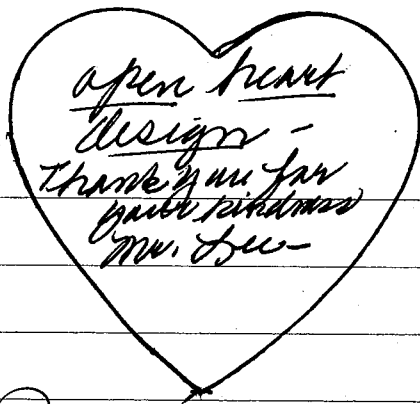 open heart
design -
Thank you for
your kindness
Mr. Lee -